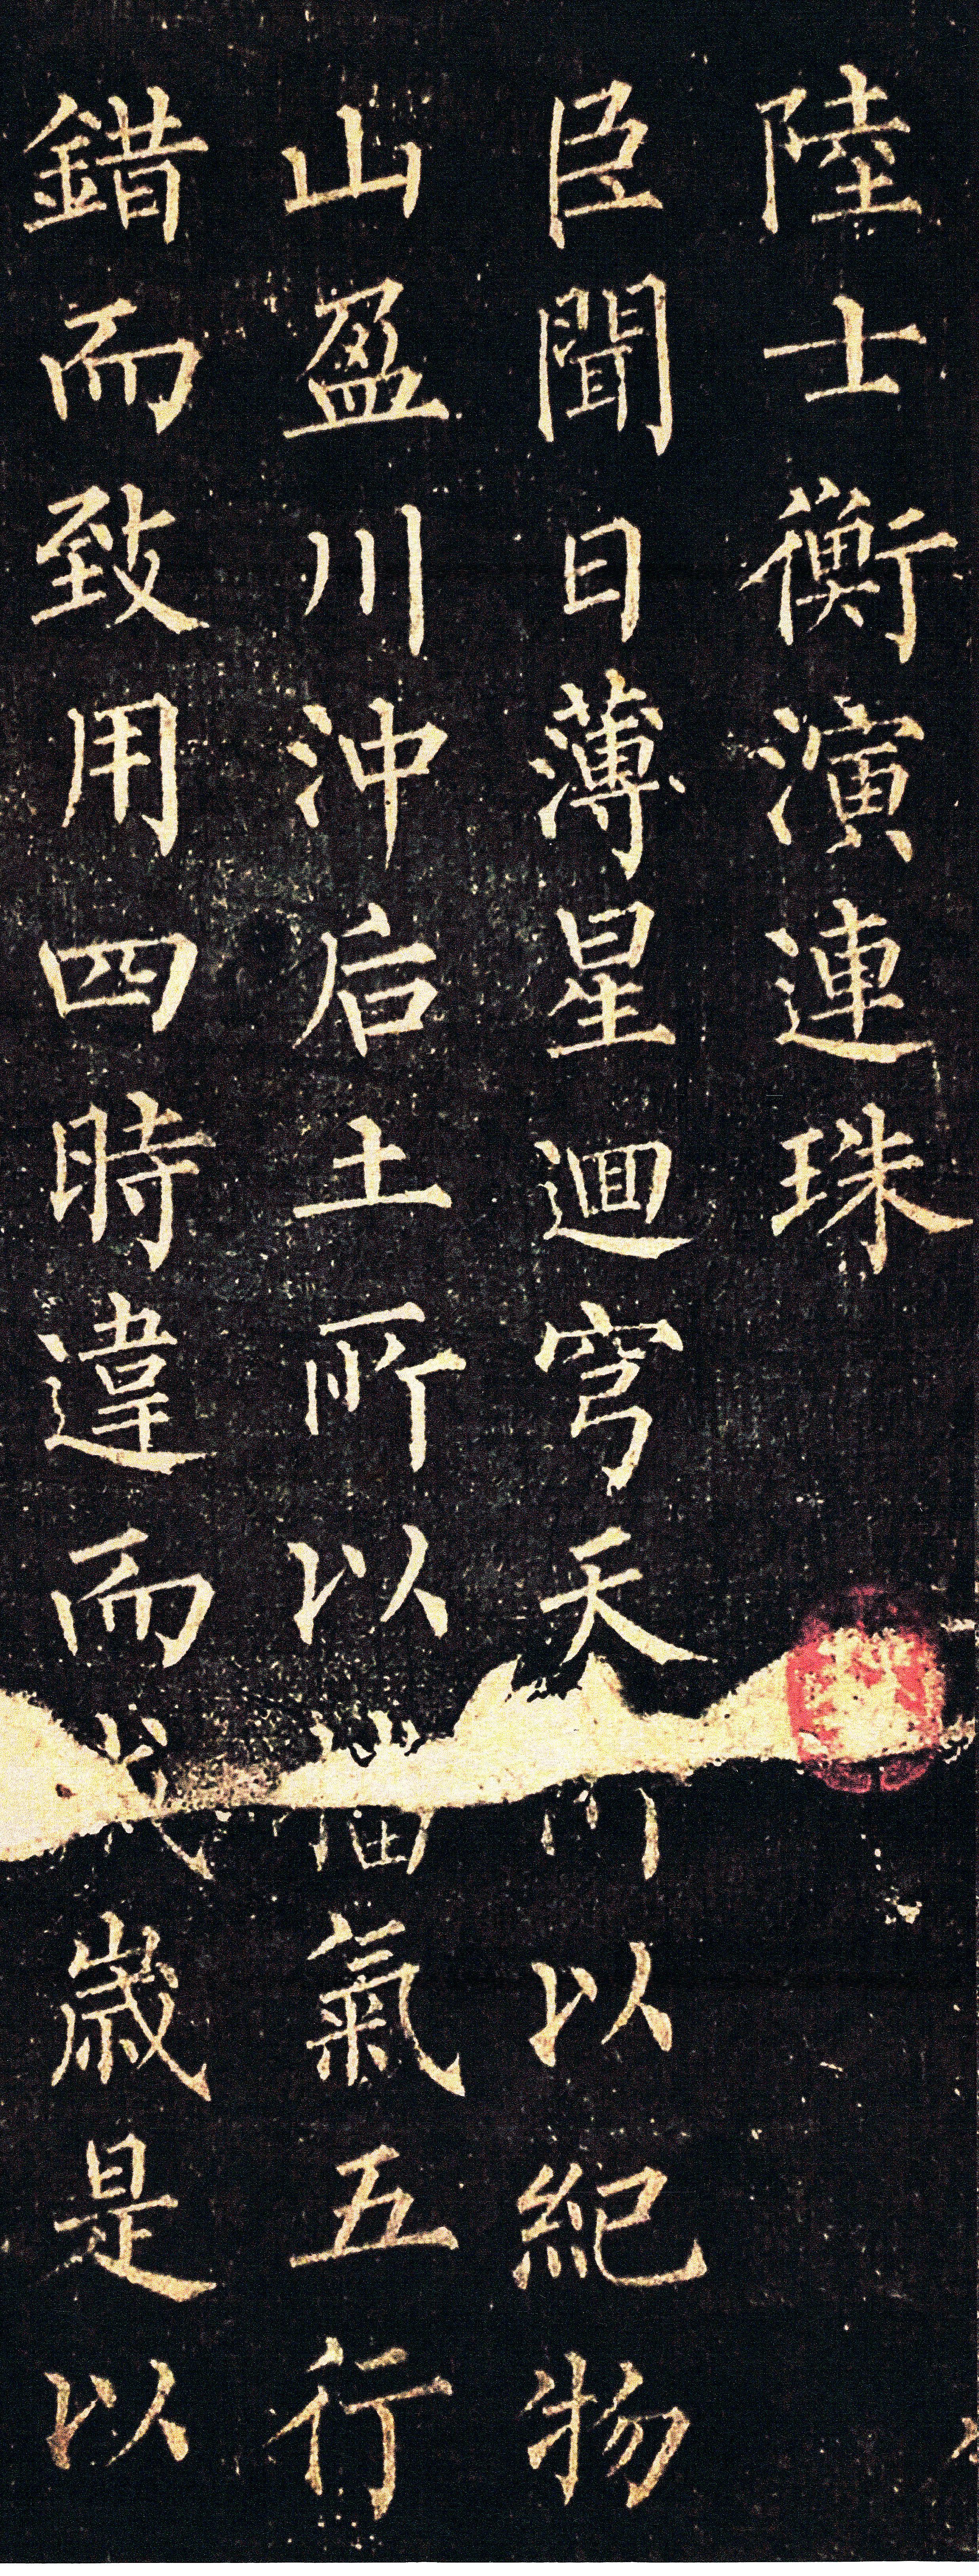 陸士衡演連珠
臣聞日薄星迴穹天以紀物
山盈川沖后土所以播氣五行
錯而致用四時違而成歲是以